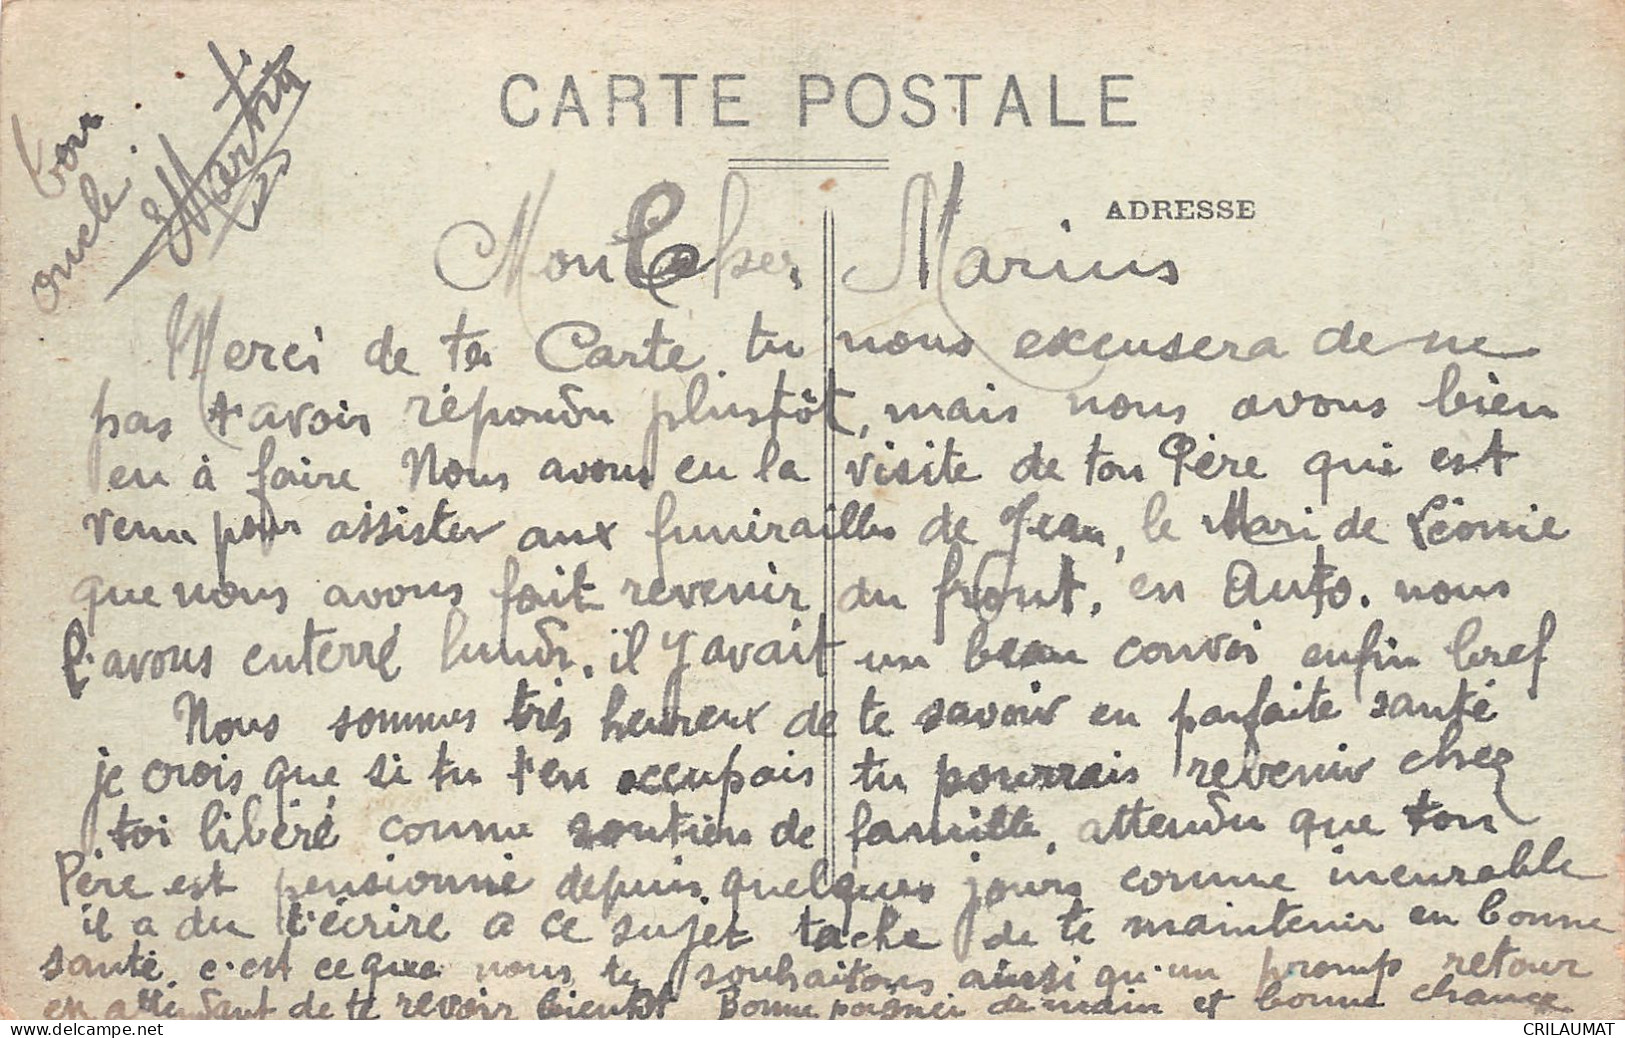 CARTE POSTALE
ADRESSE
ton
oncle.
Martin
Mon Cher Marius
Merci de ta Carte tu nous excusera de ne
pas t'avoir répondu plustôt, mais nous avons bien
eu à faire Nous avons eu la visite de ton Père qui est
venu pour assister aux funérailles de Jean, le Mari de Léonie
que nous avons fait revenir du front, en Auto. nous
l'avons enterré lundi. il y avait un beau convoi enfin bref
Nous sommes très heureux de te savoir en parfaite santé
je crois que si tu t'en occupais tu pourrais revenir chez
toi libéré comme soutien de famille, attendu que ton
Père est pensionné depuis quelques jours comme incurable
il a du t'écrire a ce sujet tache de te maintenir en bonne
santé, c'est ce que nous te souhaitons ainsi qu'un promp retour
en attendant de te revoir bientôt Bonne poignée de main et bonne chance
delcampe.net
CRILAUMAT